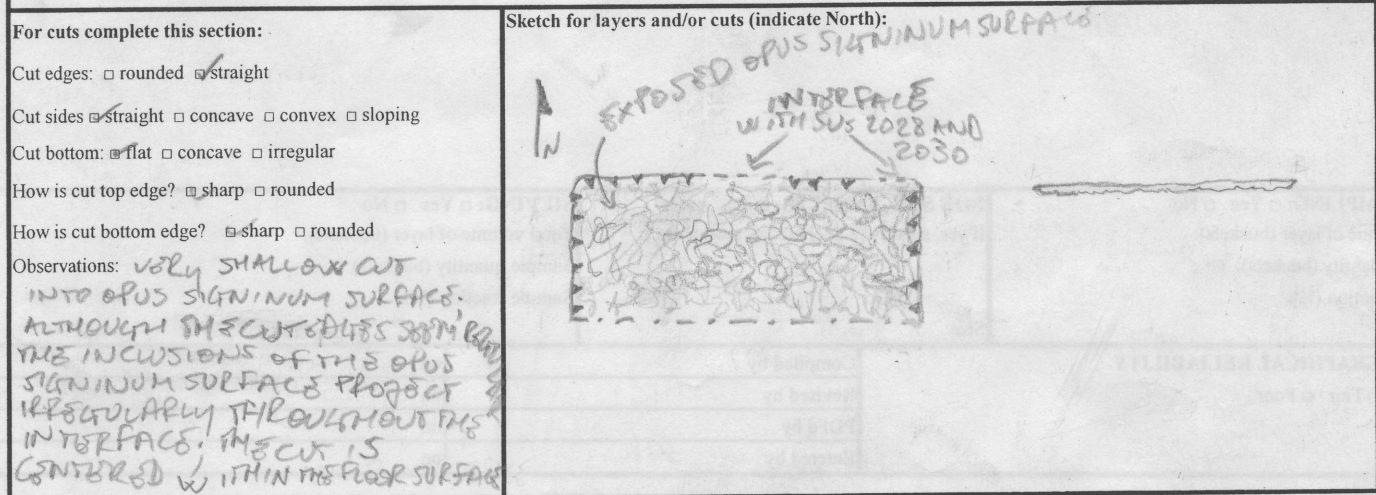 For cuts complete this section:
Cut edges: □ rounded ☑ straight
Cut sides ☑ straight □ concave □ convex □ sloping
Cut bottom: ☑ flat □ concave □ irregular
How is cut top edge? ☑ sharp □ rounded
How is cut bottom edge? ☑ sharp □ rounded
Observations: VERY SHALLOW CUT
INTO OPUS SIGNINUM SURFACE.
ALTHOUGH THE CUT EDGES
THE INCLUSIONS OF THE OPUS
SIGNINUM SURFACE PROJECT
IRREGULARLY THROUGHOUT THE
INTERFACE. THE CUT IS
CENTERED WITHIN THE FLOOR SURFACE
Sketch for layers and/or cuts (indicate North):
EXPOSED OPUS SIGNINUM SURFACE
N
INTERFACE
WITH SUS 2028 AND
2030